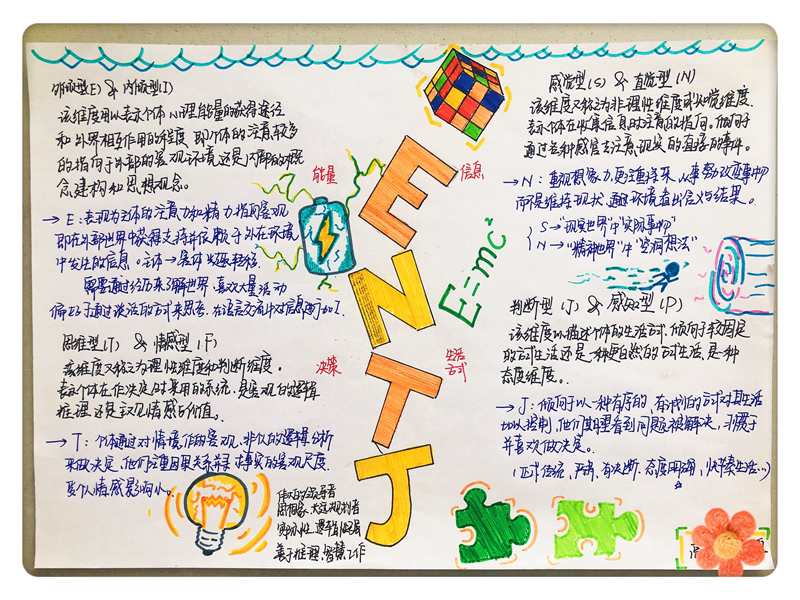 外倾型(E) & 内倾型(I)
该维度用以表示个体心理能量的获得途径
和外界相互作用的程度，即个体的注意较多
的指向于外部的客观环境还是内部的概
念建构和思想观念。
→ E：表现为主体的注意力和精力指向客观
即在外部世界中获得支持并依赖于外在环境
中发生的信息。主体→客体
需要通过经历来了解世界，喜欢大量活动
偏好于通过谈话的方式来思考，在语言交流中对信息进行加工
思维型(T) & 情感型(F)
该维度又称之为理性维度和判断维度。
表示个体在作决定时采用的系统，是客观的逻辑
推理还是主观情感与价值。
→ T：个体通过对情境作的客观、非个人的逻辑分析
来做决定，他们注重因果关系并寻求事实的客观尺度，
受个人情感影响小。
能量
信息
决策
生活
方式
E
N
T
J
E=mc²
感觉型(S) & 直觉型(N)
该维度又称之为非理性维度或知觉维度。
表示个体在收集信息时注意的指向。倾向于
通过各种感官去注意现实的直接的事件。
→ N：重视想象力，更注重将来，从事努力改变事物
而不是维持现状，
S→"现实世界"中"实际事物"
N→"精神世界"中
判断型(J) & 感知型(P)
该维度以描述个体的生活方式，倾向于较固定
的方式生活还是一种更自然的方式生活，是一种
态度维度。
→ J：倾向于以一种有序的、有计划的方式对其生活
加以控制，他们期望看到问题被解决，习惯于
并喜欢做决定。
严肃，有决断，态度明确，快节奏生活…)
伟大的领导者
实际理性，逻辑性强
善于推理，智慧工作